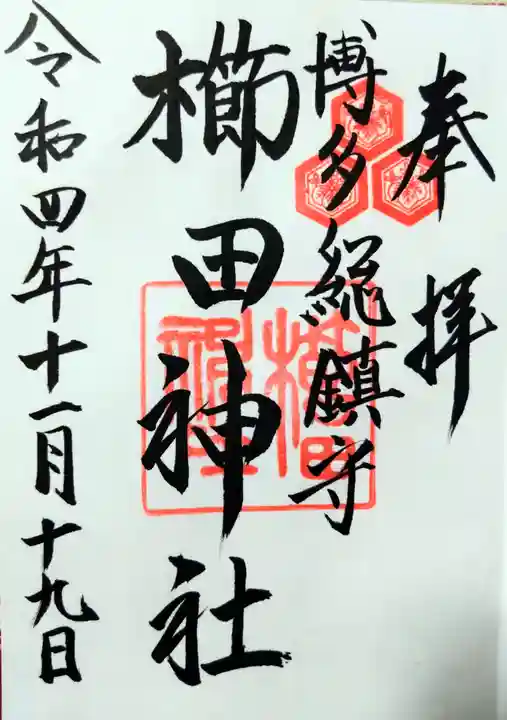 奉拝
博多総鎮守
櫛田神社
令和四年十一月十九日
櫛田神社